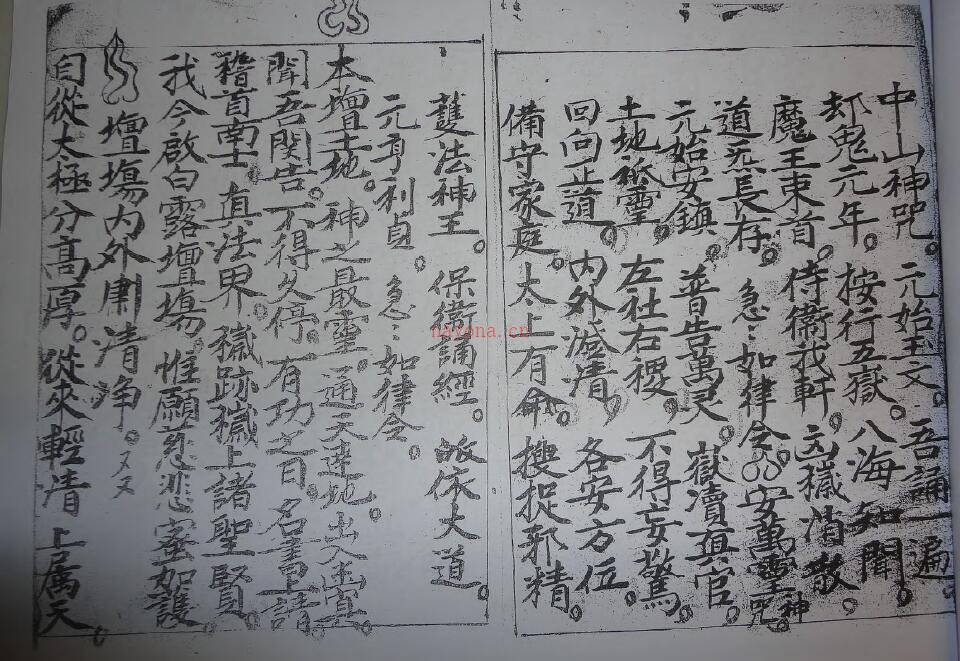 中山神咒。元始玉文。吾誦一遍。
却鬼元年。按行五嶽。八海知聞。
魔王束首。侍衛我軒。凶穢消散。
道炁長存。急〻如律令。安萬靈神咒
元始安鎮。普告萬灵。嶽瀆真官。
土地祇靈。左社右稷。不得妄驚。
回向正道。内外澄清。各安方位。
備守家庭。太上有命。搜捉邪精。
護法神王。保衛誦經。皈依大道。
元亨利貞。急〻如律令。
本壇土地。神之最靈。通天達地。出入幽冥。
聞吾関告。不得久停。有功之日。名書上請。
稽首南士。真法界。穢跡穢上諸聖賢。
我今啟白露壇場。惟願慈悲蜜加護。
壇塲内外肅清净。又又
自從太極分高厚。從來輕清上属天。
nayona.cn